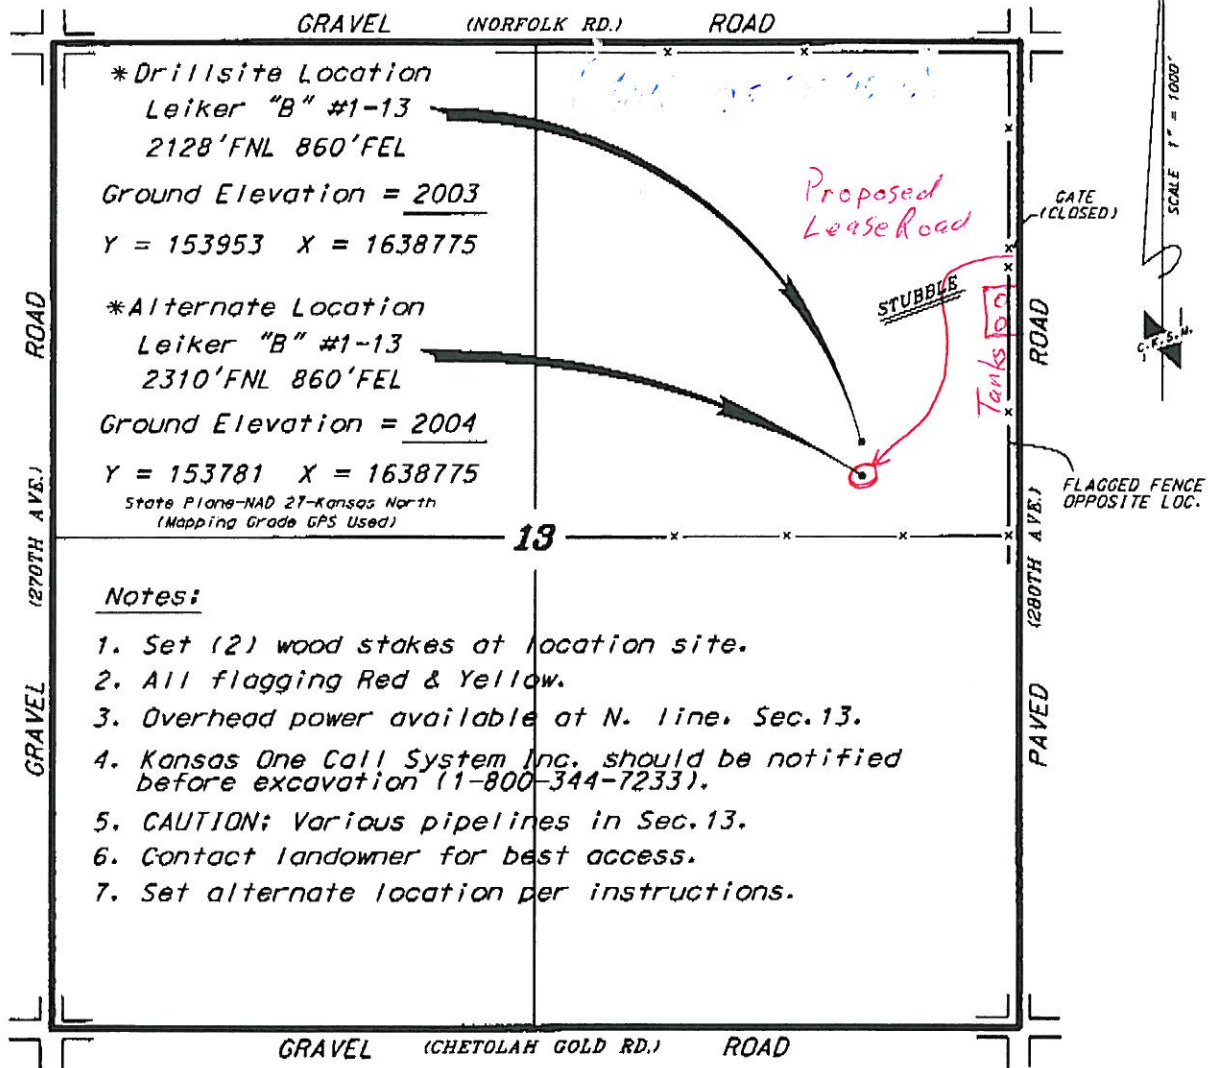 GRAVEL (NORFOLK RD.) ROAD
*Drillsite Location
Leiker "B" #1-13
2128'FNL 860'FEL
Ground Elevation = 2003
Y = 153953 X = 1638775
*Alternate Location
Leiker "B" #1-13
2310'FNL 860'FEL
Ground Elevation = 2004
Y = 153781 X = 1638775
State Plane-NAD 27-Kansas North
(Mapping Grade GPS Used)
Proposed
Lease Road
STUBBLE
Tanks
GATE
(CLOSED)
SCALE 1" = 1000'
C.K.S.M.
FLAGGED FENCE
OPPOSITE LOC.
13
GRAVEL (270TH AVE.) ROAD
PAVED (280TH AVE.) ROAD
Notes:
1. Set (2) wood stakes at location site.
2. All flagging Red & Yellow.
3. Overhead power available at N. line. Sec.13.
4. Kansas One Call System Inc. should be notified
before excavation (1-800-344-7233).
5. CAUTION: Various pipelines in Sec.13.
6. Contact landowner for best access.
7. Set alternate location per instructions.
GRAVEL (CHETOLAH GOLD RD.) ROAD